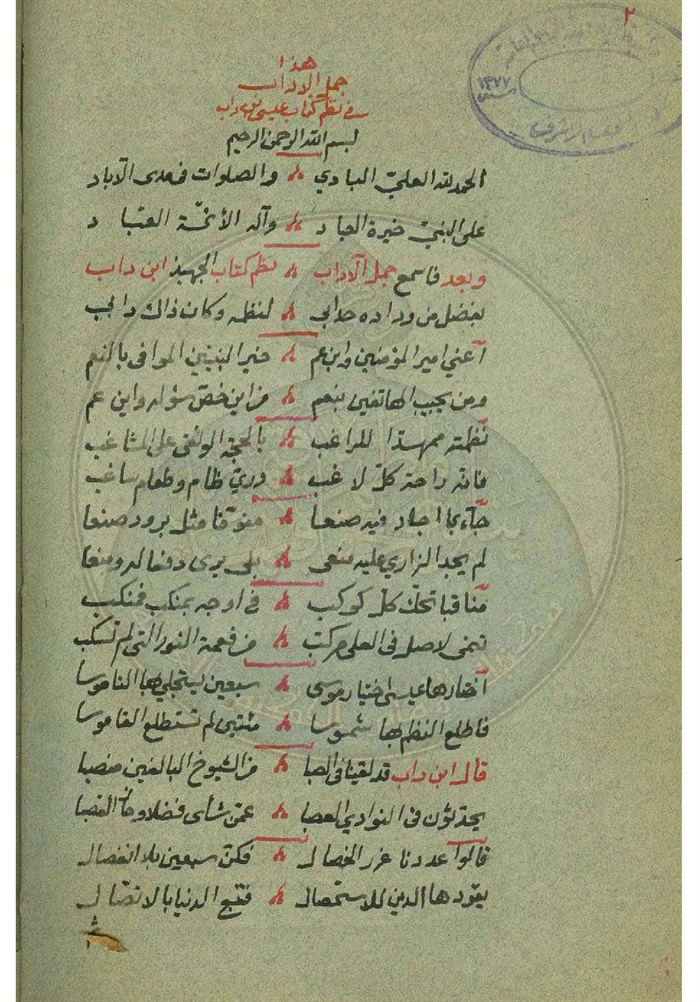 ٢
هذا
جمل الآداب
في نظم كتاب عيسى بن داب
بسم الله الرحمن الرحيم
الحمد لله العلي البادي والصلوات في مدى الآباد
على النبي خيرة العباد وآله الأئمة العباد
وبعد فاسمع جمل الآداب نظم كتاب الجهبذ ابن داب
بفضل من وداده حدا بي لنظمه وكان ذاك دابي
أعني امير المؤمنين وابن عم خير النبيين الموافى بالنعم
ومن يجيب الهاتفين بنعم من اين خص سؤله واين عم
نظمته ممهدا للراغب بالحجة الوثقى على المشاغب
فانه راحة كل لاغب وري ظام وطعام ساغب
جاء كما اجاد فيه صنعا مفوفا مثل برود صنعا
لم يجد الزاري عليه منعى بلى يرى دفعا له ومنعا
مناقبا تحك كل كوكب في اوجه بمنكب فمنكب
تنمى لاصل في العلى مركب من فعمة النور التي لم تسكب
أختارها عيسى اختيار موسى سبعين يستجلي بها الناموسا
فاطلع النظم بها شموسا مثنيى لم تستطلع القاموسا
قال ابن داب قد لقينا في الصبا من الشيوخ البالغين منصبا
يحدثون في النوادي العصبا عمن شأى فضلا وحاز القصبا
قالوا عددنا غرر الخصال فكن سبعين بلا انفصال
يقودها الدين للاستحصال فتتبع الدنيا بالاتصال